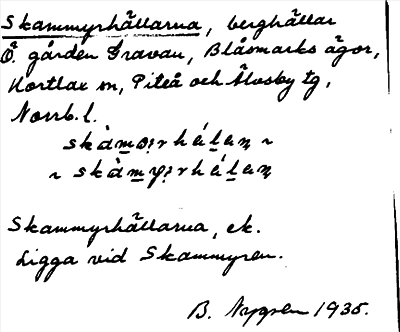 Skammyrhällarna, berghällar
Ö. gården Gravan, Blåsmarks ägor,
Hortlax sn, Piteå och Älvsby tg,
Norrb. l.
skàmørhálaɳ ~
~ skàmyrhálaɳ
Skammyrhällarna, ek.
Ligga vid Skammyren.
B. Nygren 1935.